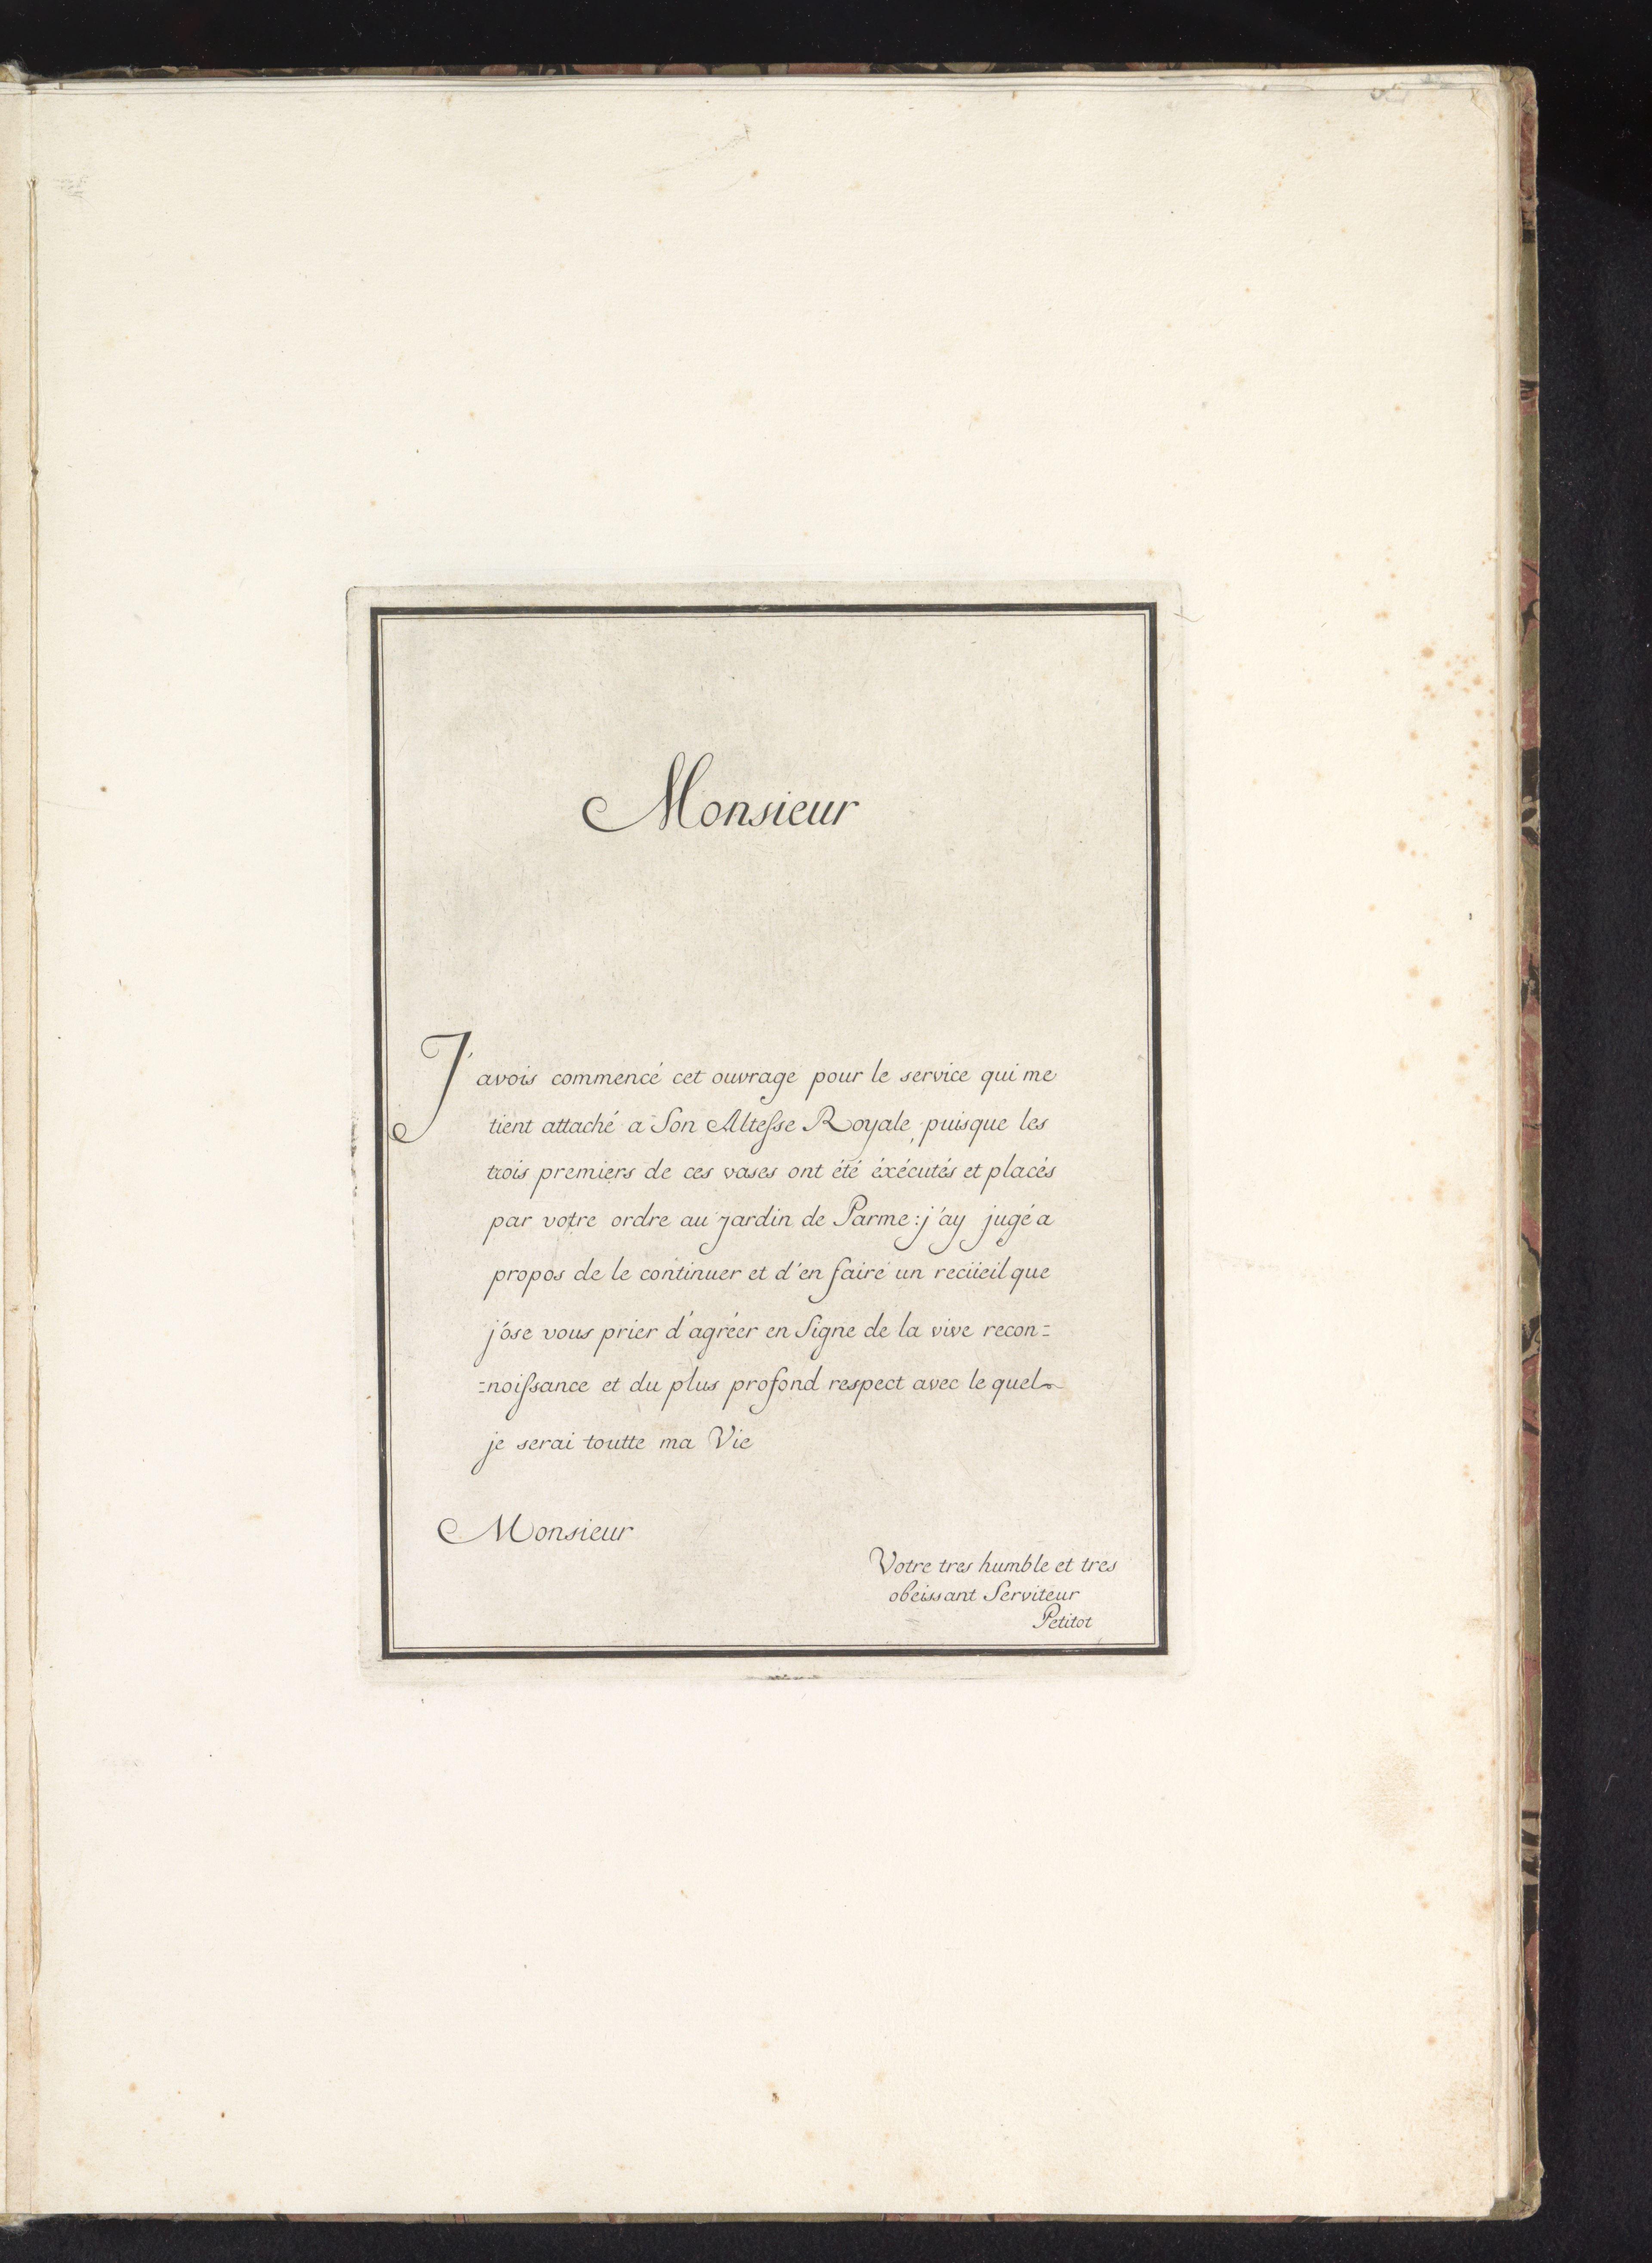 Monsieur
J'avois commencé cet ouvrage pour le service qui me
tient attaché a Son Altesse Royale, puisque les
trois premiers de ces vases ont été éxécutés et placés
par votre ordre au jardin de Parme: j'ay jugé a
propos de le continuer et d'en faire un recüeil que
j'ose vous prier d'agréer en Signe de la vive recon=
=noissance et du plus profond respect avec le quel
je serai toutte ma Vie
Monsieur
Votre tres humble et tres
obeissant Serviteur
Petitot